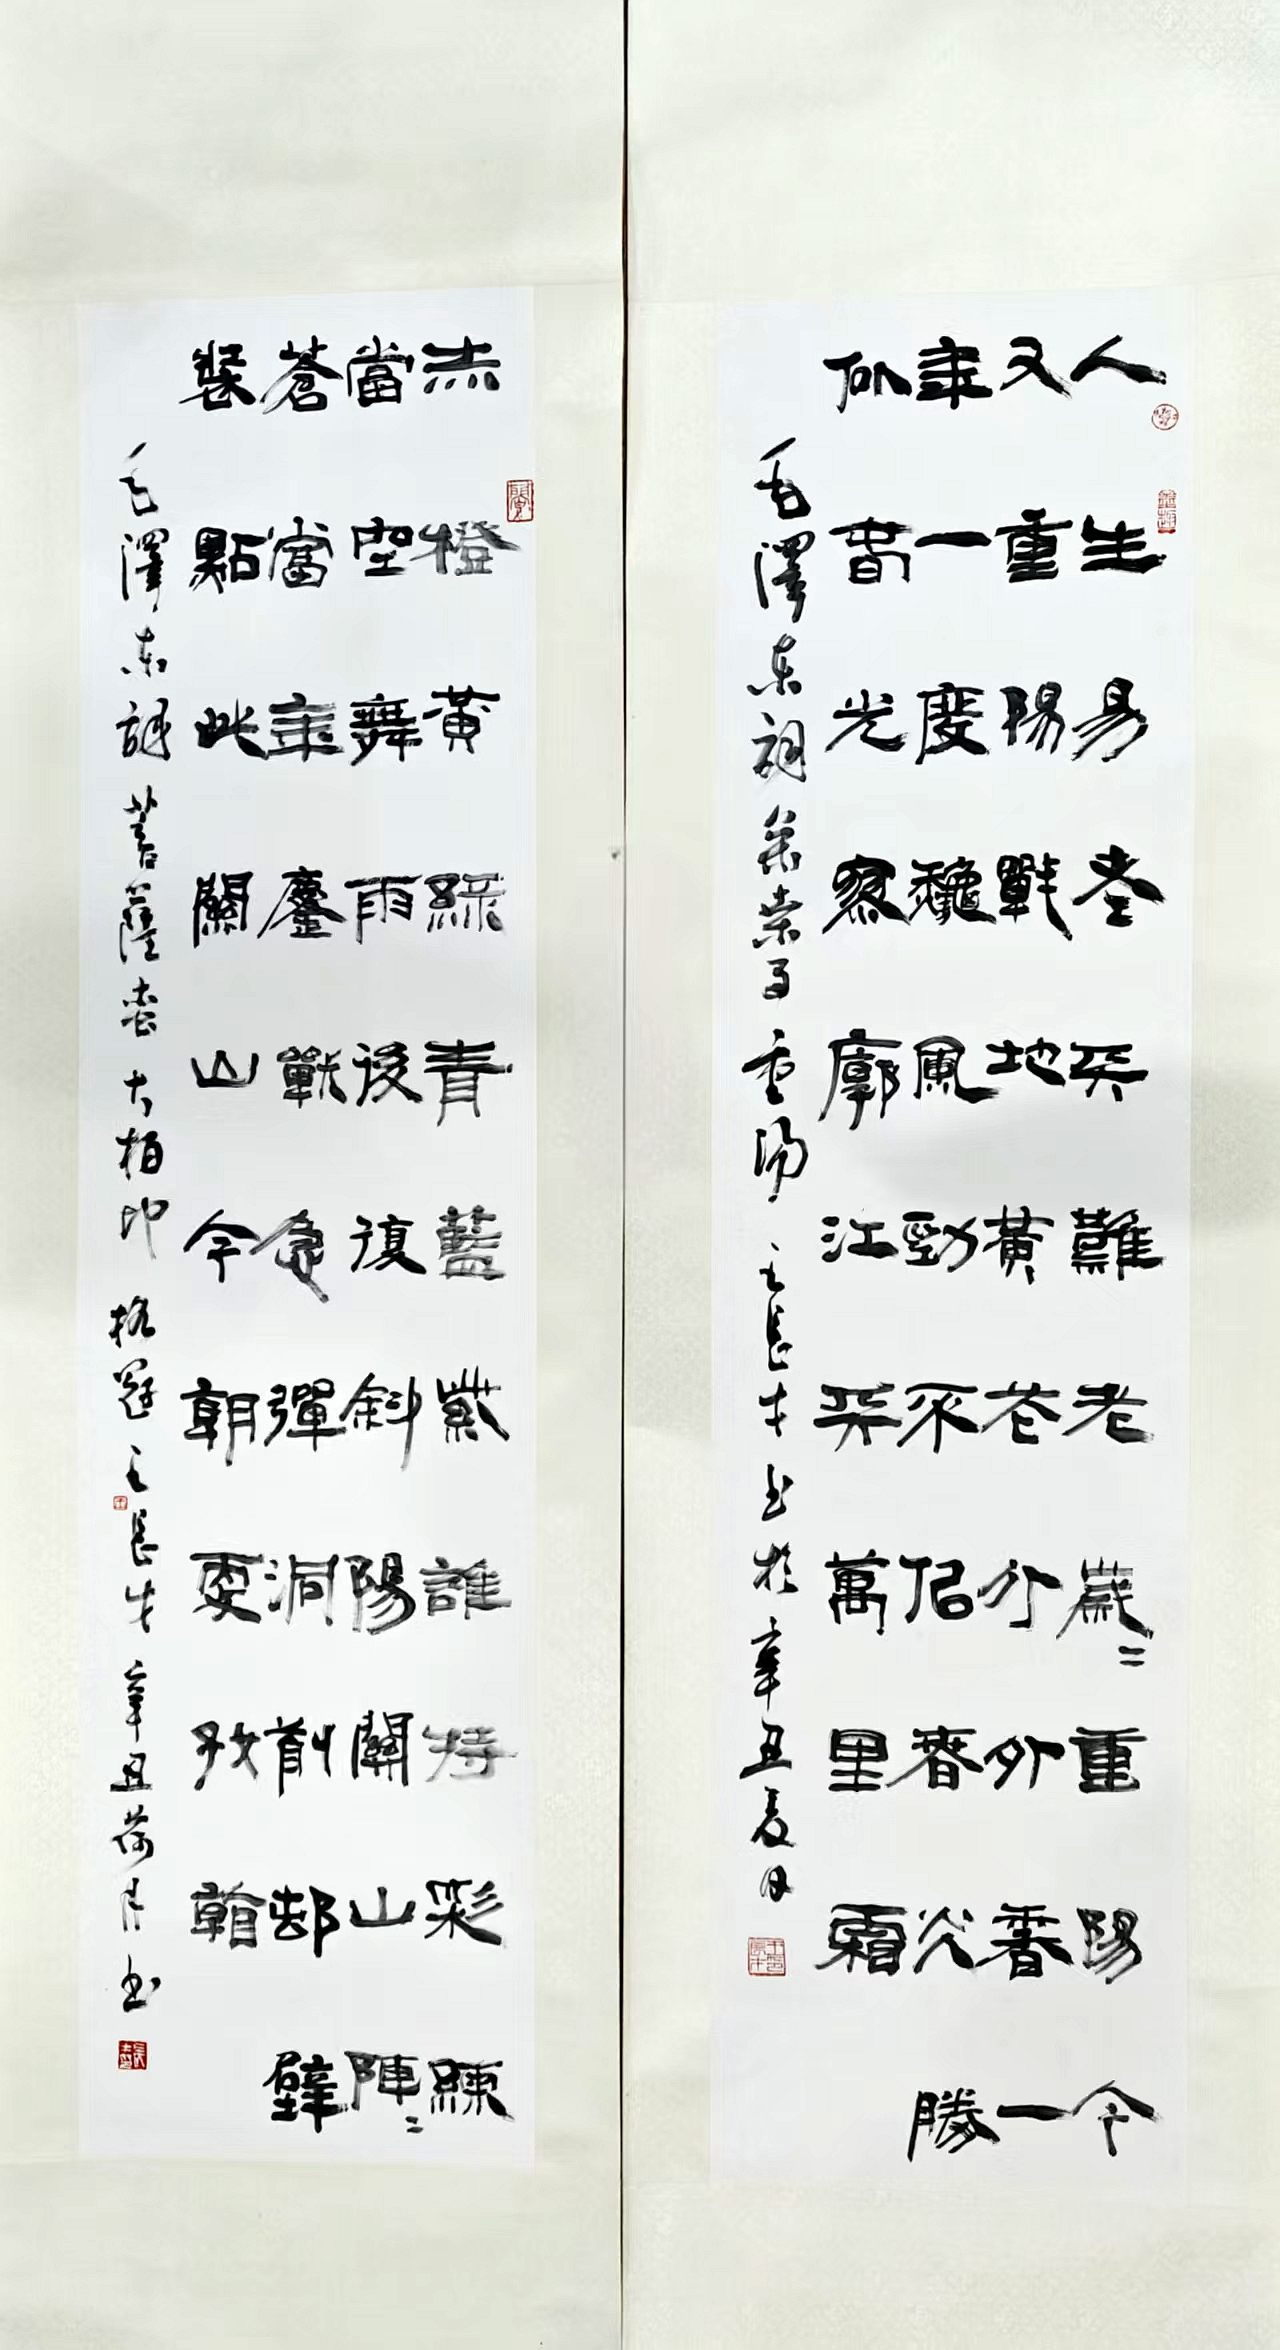 人生易老天難老歲〻重陽今
又重陽戰地黃花分外香一
年一度秋風勁不似春光勝
似春光寥廓江天萬里霜
毛澤東詞采桑子重陽 王長才书於辛丑夏月
赤橙黃綠青藍紫誰持彩練
當空舞雨後復斜陽關山陣〻
蒼當年鏖戰急彈洞前邨壁
裝點此關山今朝更好看
毛澤東詞菩薩蠻大柏地 王長才辛丑荷月书